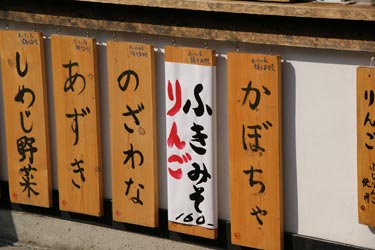 りんご
かぼちゃ
ふきみそ
りんご
160
のざわな
あずき
しめじ野菜